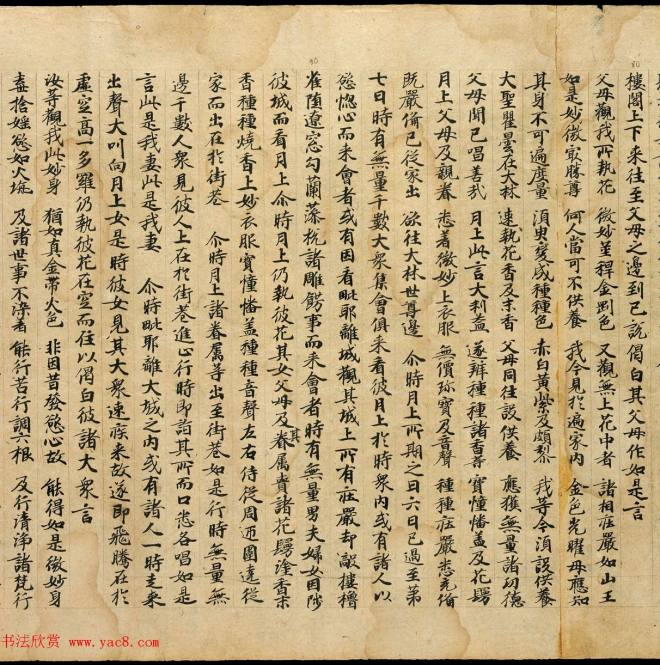 樓閣上下来往至父母之邊到已說偈白其父母作如是言
父母觀我所執花 微妙莖稈金剛色 又觀無上花中者 諸相莊嚴如山王
如是妙微㝡勝尊 何人當可不供養 我今見於遍家内 金色光曜母應知
其身不可遍度量 須臾變成種種色 赤白黃紫及頗梨 我等今須設供養
大聖瞿曇在大林 速執花香及末香 父母同往設供養 應獲無量諸功德
父母聞已唱善哉 月上此言大利益 遂辦種種諸香等 寶幢幡蓋及花鬘
月上父母及親眷 悉着微妙上衣服 無價珎寶及音聲 種種莊嚴悉充備
既嚴備已從家出 欲往大林世尊邊 尒時月上所期之日六日已過至第
七日時有無量千數大衆集會俱来看彼月上於時衆内或有諸人以
慾惚心而来會者或有因看毗耶離城觀其城上所有莊嚴却敵樓櫓
雀墮遼窓勾蘭藻梲諸雕飾事而来會者時有無量男夫婦女因陟
彼城而看月上尒時月上仍執彼花其女父母及其眷屬賷諸花鬘塗香末
香種種燒香上妙衣服寶幢幡盖種種音聲左右侍從周迊圍遶從
家而出在於街巷 尒時月上諸眷屬等出至街巷如是行時無量無
邊千數人衆見彼人上在於街巷進止行時即詣其所而口悉各唱如是
言此是我妻此是我妻 尒時毗耶離大城之内或有諸人一時走来
出聲大叫向月上女是時彼女見其大衆速疾来故遂即飛騰在於
虛空高一多羅仍執彼花在空而住以偈白彼諸大衆言
汝等觀我此妙身 猶如真金帶火色 非因昔發慾心故 能得如是微妙身
棄捨婬慾如火坑 及諸世事不染着 能行苦行調六根 及行清淨諸梵行
书法欣赏 www.yac8.com